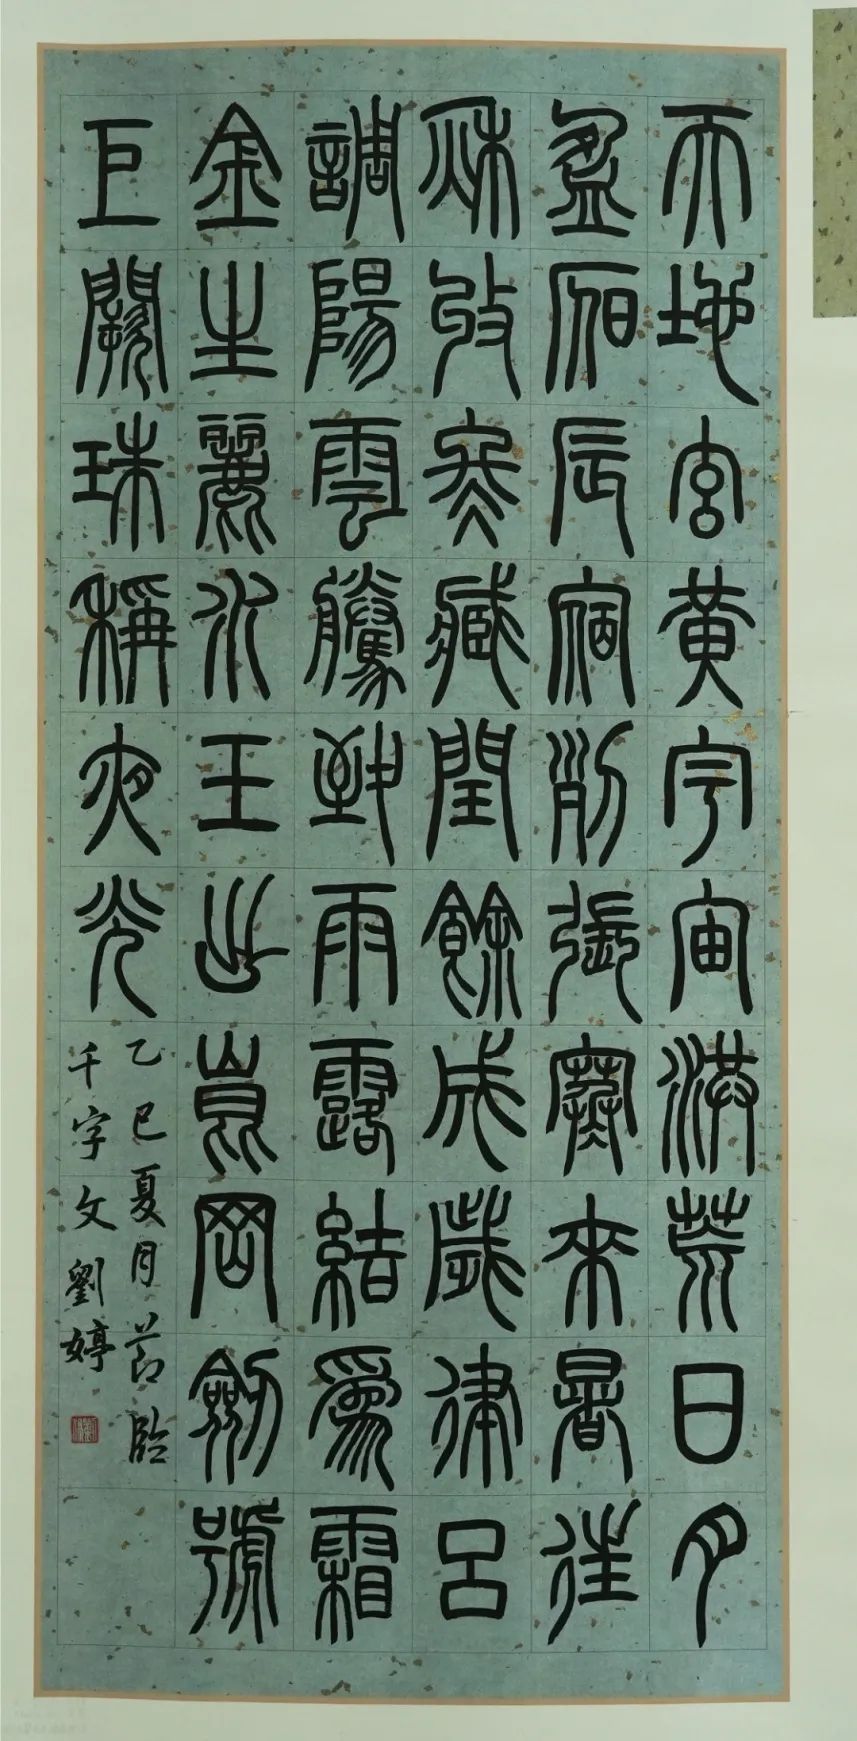 天地玄黃宇宙洪荒日月
盈昃辰宿列張寒來暑往
秋收冬藏閏餘成歲律呂
調陽雲騰致雨露結爲霜
金生麗水玉出崑岡劍號
巨闕珠稱夜光
乙巳夏月節臨
千字文劉婷